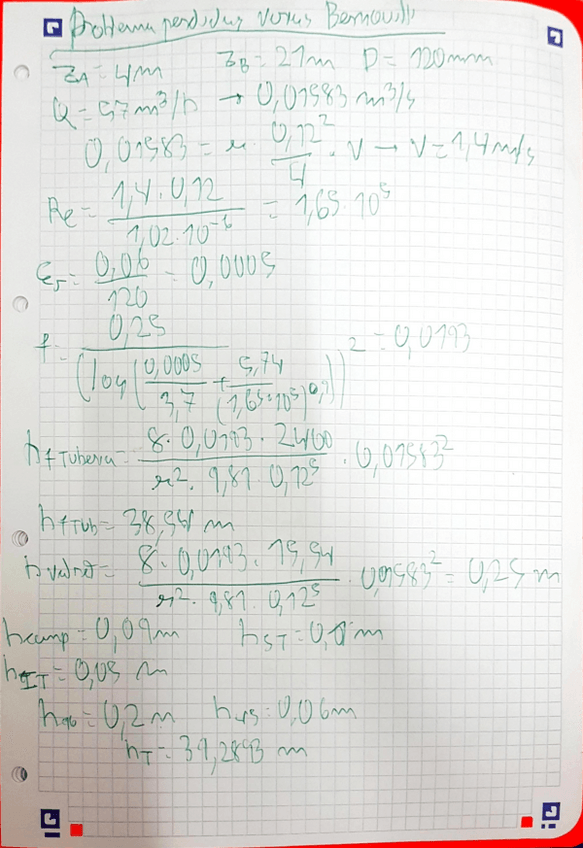 Problema perdidas versus Bernoulli
Z_A = 4m Z_B = 21m D = 120mm
Q = 57m³/h → 0,01583 m³/s
0,01583 = π · 0,12²/4 · V → V = 1,4 m/s
Re = 1,4 · 0,12 / 1,02 · 10⁻⁶ = 1,65 · 10⁵
ε_r = 0,06/120 = 0,0005
f = 0,25 / (log(0,0005/3,7 + 5,74/(1,65·10⁵)^0,9))² = 0,0193
h_f Tuberia = 8 · 0,0193 · 2460 / π² · 9,81 · 0,12⁵ · 0,01583²
h_f Tub = 38,54 m
h valret = 8 · 0,0193 · 15,94 / π² · 9,81 · 0,12⁵ · 0,01583² = 0,25 m
h comp = 0,09m h_ST = 0,1m
h_IT = 0,05 m
h_90 = 0,2m h_45 = 0,06m
h_T = 39,2893 m